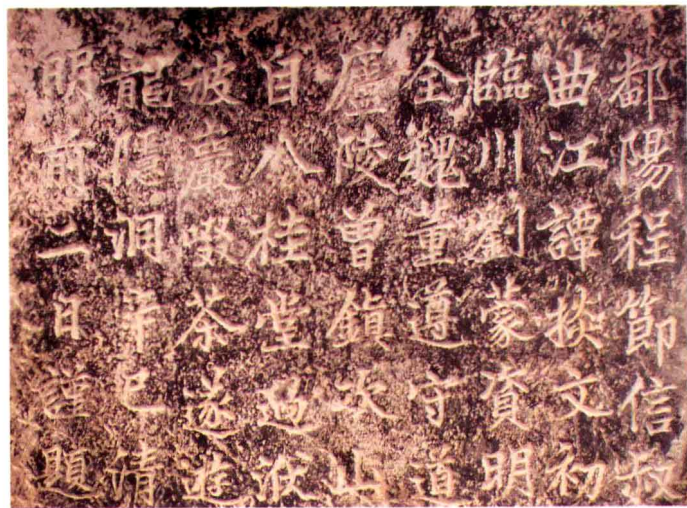 鄱陽程節信叔
曲江譚掞文初
臨川劉蒙資明
全魏董遵守道
廬陵曾鎮次山
自八桂堂過伏
波巖啜茶遂遊
龍隱洞辛巳清
明前二日謹題